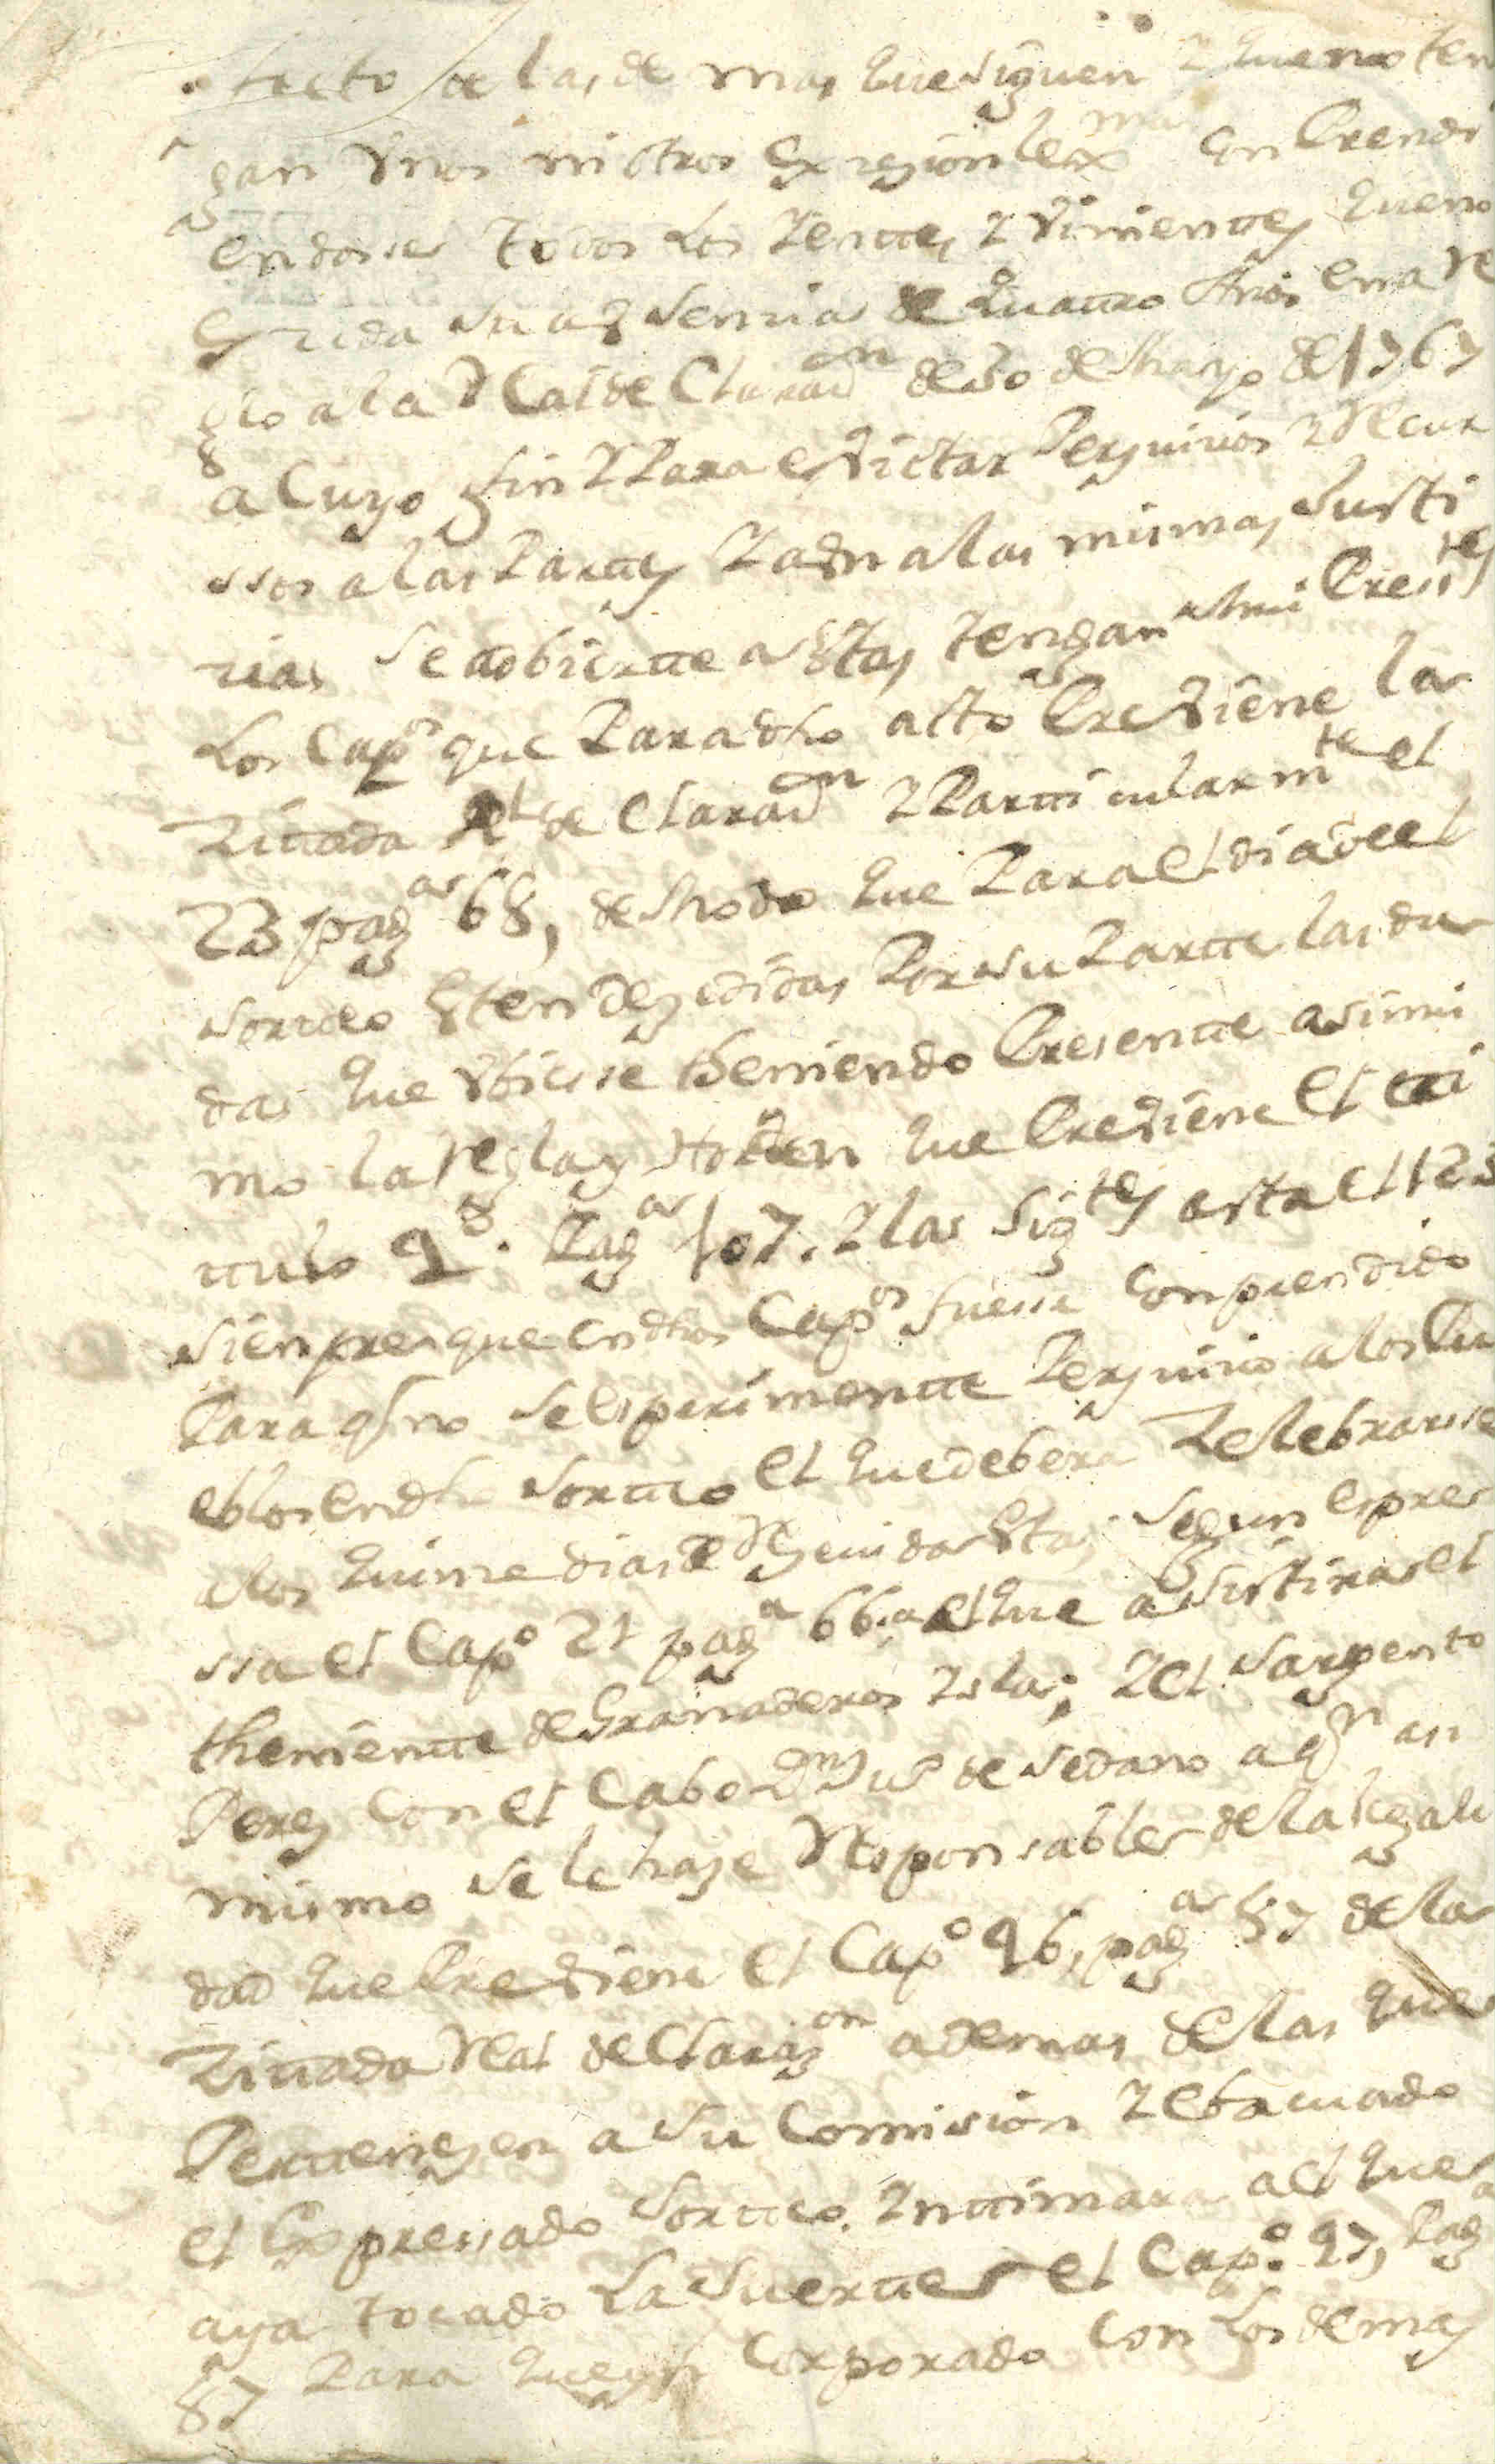 efecto de las de mas que siguen y que no ten
gan unos ni otros
endosse todos los y vinientes que no
su ausencia de quatro años en arre
glo a la Rl. declarazon de 30 de Mayo de 1767
a cuyo fin y para evictar perjuicios y recur
ssos a las partes y aun a las mismas Justi
cias se adbiertte a estas tengan mui presttes
los capos que para dho acto previene la
zittada Rl. declaraon y partticularmte el
23 paga 68, de modo que para el dia del
sortteo esten dezedidas por su partte las du
das que ubiesse theniendo presentte asimi
mo la regla y horden que previene el tti
ttulo 2o. paga 107. y las sigtes asta el 123
sienpre que en dhos Capos fuesse comprendido
para q no se esperimentte perjuicio a los Pu
eblos en dho sortteo el que debera zelebrarsse
a los quinze dias de rezeuida esta segun espre
ssa el Capo 21 paga 66. a el que asistira el
thenientte de Granaderos Ysla; y el Sargento
Perez con el Cabo Dn Luis de Sedano a qn asi
mismo se le haze responsable de la legali
dad que previene el Capo 26, paga 57 de la
zittada Real declarazon ademas de las que
perttenezen a su comision y ebacuado
el expressado sortteo. Ynttimara al que
aya tocado la suertte el Capo. 27, Paga
57 para que yncorporado con los demas